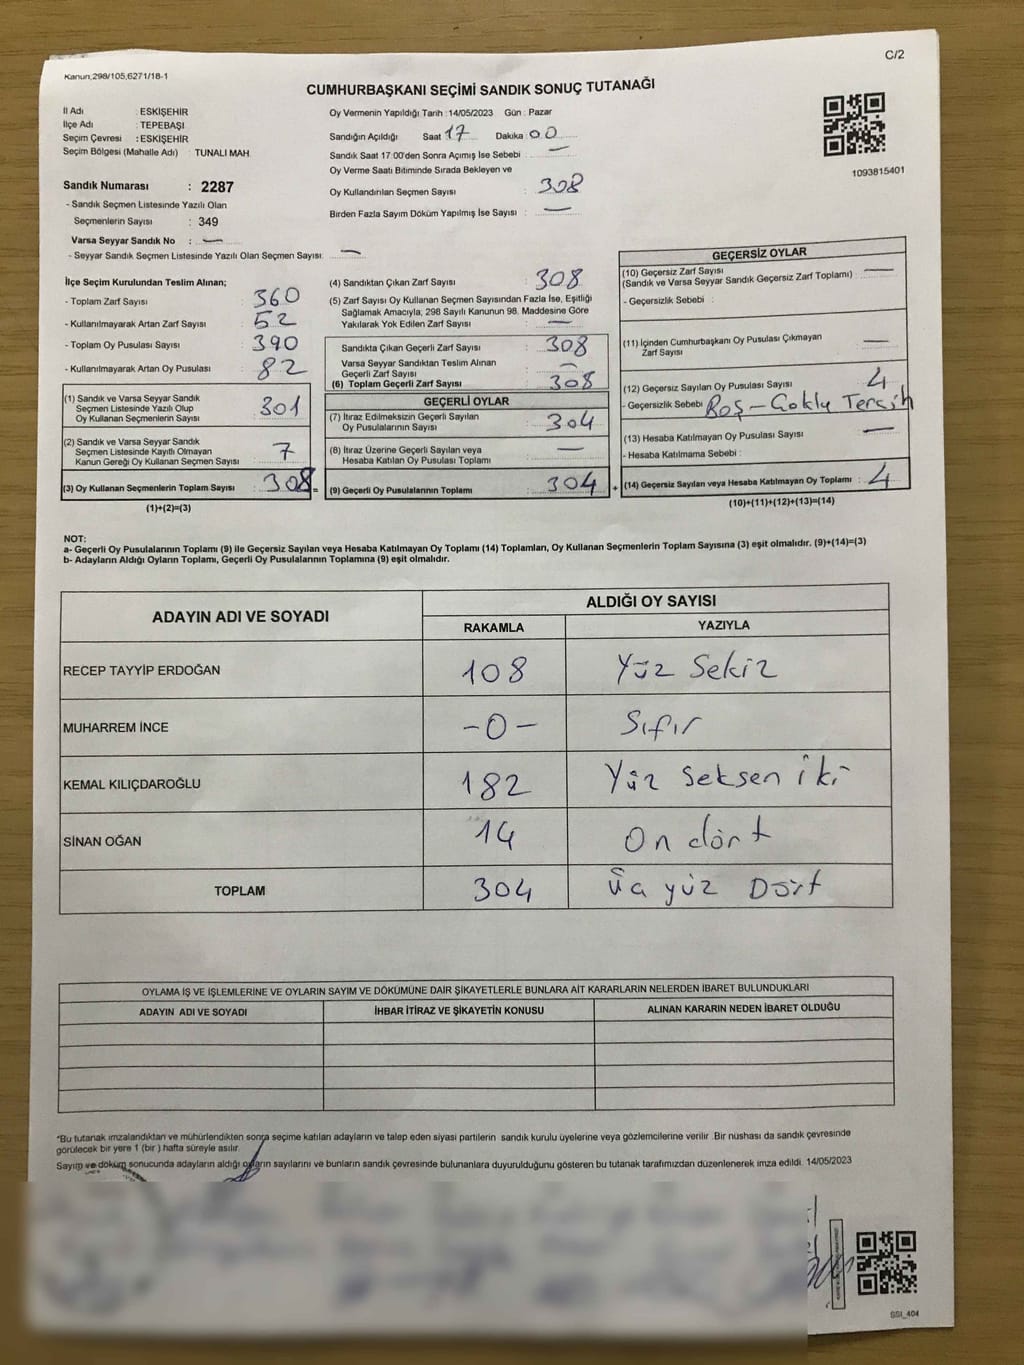 C/2
Kanun,298/105,6271/18-1
CUMHURBAŞKANI SEÇİMİ SANDIK SONUÇ TUTANAĞI
İl Adı : ESKİŞEHİR
İlçe Adı : TEPEBAŞI
Seçim Çevresi : ESKİŞEHİR
Seçim Bölgesi (Mahalle Adı) : TUNALI MAH
Sandık Numarası : 2287
- Sandık Seçmen Listesinde Yazılı Olan
Seçmenlerin Sayısı : 349
Varsa Seyyar Sandık No : —
- Seyyar Sandık Seçmen Listesinde Yazılı Olan Seçmen Sayısı: —
Oy Vermenin Yapıldığı Tarih : 14/05/2023 Gün : Pazar
Sandığın Açıldığı Saat 17 Dakika 00
Sandık Saat 17:00'den Sonra Açımış İse Sebebi : —
Oy Verme Saati Bitiminde Sırada Bekleyen ve
Oy Kullandırılan Seçmen Sayısı : 308
Birden Fazla Sayım Döküm Yapılmış İse Sayısı : —
1093815401
İlçe Seçim Kurulundan Teslim Alınan;
- Toplam Zarf Sayısı : 360
- Kullanılmayarak Artan Zarf Sayısı : 52
- Toplam Oy Pusulası Sayısı : 390
- Kullanılmayarak Artan Oy Pusulası : 82
(1) Sandık ve Varsa Seyyar Sandık
Seçmen Listesinde Yazılı Olup
Oy Kullanan Seçmenlerin Sayısı : 301
(2) Sandık ve Varsa Seyyar Sandık
Seçmen Listesinde Kayıtlı Olmayan
Kanun Gereği Oy Kullanan Seçmen Sayısı : 7
(3) Oy Kullanan Seçmenlerin Toplam Sayısı : 308 =
(1)+(2)=(3)
(4) Sandıktan Çıkan Zarf Sayısı : 308
(5) Zarf Sayısı Oy Kullanan Seçmen Sayısından Fazla İse, Eşitliği
Sağlamak Amacıyla, 298 Sayılı Kanunun 98. Maddesine Göre
Yakılarak Yok Edilen Zarf Sayısı : —
Sandıkta Çıkan Geçerli Zarf Sayısı : 308
Varsa Seyyar Sandıktan Teslim Alınan
Geçerli Zarf Sayısı : —
(6) Toplam Geçerli Zarf Sayısı : 308
GEÇERLİ OYLAR
(7) İtiraz Edilmeksizin Geçerli Sayılan
Oy Pusulalarının Sayısı : 304
(8) İtiraz Üzerine Geçerli Sayılan veya
Hesaba Katılan Oy Pusulası Toplamı : —
(9) Geçerli Oy Pusulalarının Toplamı : 304 +
GEÇERSİZ OYLAR
(10) Geçersiz Zarf Sayısı
(Sandık ve Varsa Seyyar Sandık Geçersiz Zarf Toplamı) : —
- Geçersizlik Sebebi :
(11) İçinden Cumhurbaşkanı Oy Pusulası Çıkmayan
Zarf Sayısı : —
(12) Geçersiz Sayılan Oy Pusulası Sayısı : 4
- Geçersizlik Sebebi : Boş - Çoklu Tercih
(13) Hesaba Katılmayan Oy Pusulası Sayısı : —
- Hesaba Katılmama Sebebi :
(14) Geçersiz Sayılan veya Hesaba Katılmayan Oy Toplamı : 4
(10)+(11)+(12)+(13)=(14)
NOT:
a- Geçerli Oy Pusulalarının Toplamı (9) ile Geçersiz Sayılan veya Hesaba Katılmayan Oy Toplamı (14) Toplamları, Oy Kullanan Seçmenlerin Toplam Sayısına (3) eşit olmalıdır. (9)+(14)=(3)
b- Adayların Aldığı Oyların Toplamı, Geçerli Oy Pusulalarının Toplamına (9) eşit olmalıdır.
ADAYIN ADI VE SOYADI ALDIĞI OY SAYISI
RAKAMLA YAZIYLA
RECEP TAYYİP ERDOĞAN 108 Yüz Sekiz
MUHARREM İNCE -0- Sıfır
KEMAL KILIÇDAROĞLU 182 Yüz Seksen iki
SİNAN OĞAN 14 On dört
TOPLAM 304 Üç yüz Dört
OYLAMA İŞ VE İŞLEMLERİNE VE OYLARIN SAYIM VE DÖKÜMÜNE DAİR ŞİKAYETLERLE BUNLARA AİT KARARLARIN NELERDEN İBARET BULUNDUKLARI
ADAYIN ADI VE SOYADI İHBAR İTİRAZ VE ŞİKAYETİN KONUSU ALINAN KARARIN NEDEN İBARET OLDUĞU
*Bu tutanak imzalandıktan ve mühürlendikten sonra seçime katılan adayların ve talep eden siyasi partilerin sandık kurulu üyelerine veya gözlemcilerine verilir. Bir nüshası da sandık çevresinde
görülecek bir yere 1 (bir) hafta süreyle asılır.
Sayım ve döküm sonucunda adayların aldığı oyların sayılarını ve bunların sandık çevresinde bulunanlara duyurulduğunu gösteren bu tutanak tarafımızdan düzenlenerek imza edildi. 14/05/2023
SSI_404